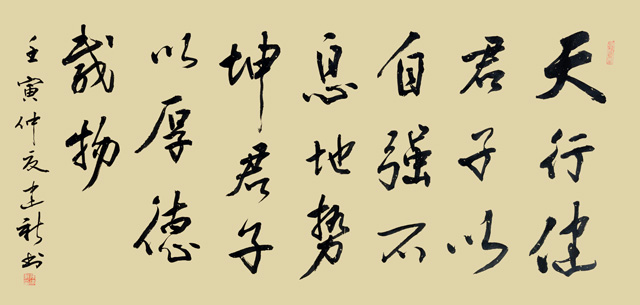 天行健
君子以
自强不
息地势
坤君子
以厚德
载物
壬寅仲夏建新书